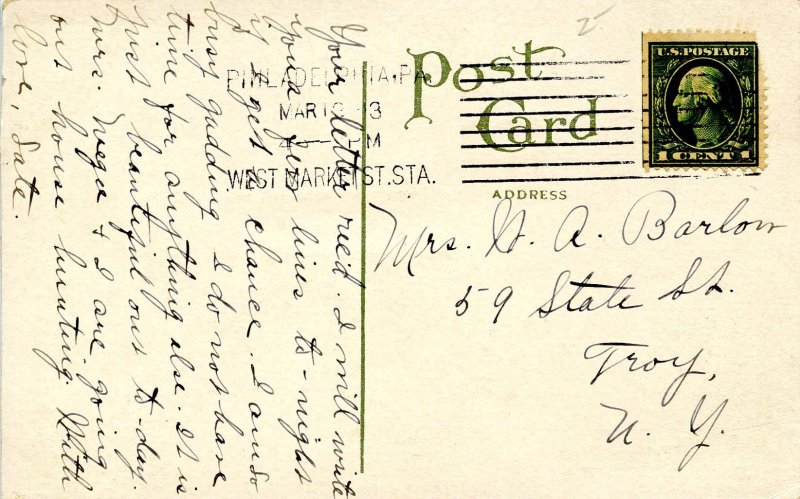 Your letter rec'd. I will write
you a few lines to-night
if I get a chance. I am so
busy gadding I do not have
time for anything else. It is
just beautiful out to-day.
Mrs. & I are going
out house hunting. With
love, Kate.
Post
Card
ADDRESS
PHILADELPHIA, PA.
MAR 13
PM
WEST MARKET ST. STA.
U.S. POSTAGE
1 CENT 1
Mrs. W. A. Barlow
59 State St.
Troy,
N. Y.